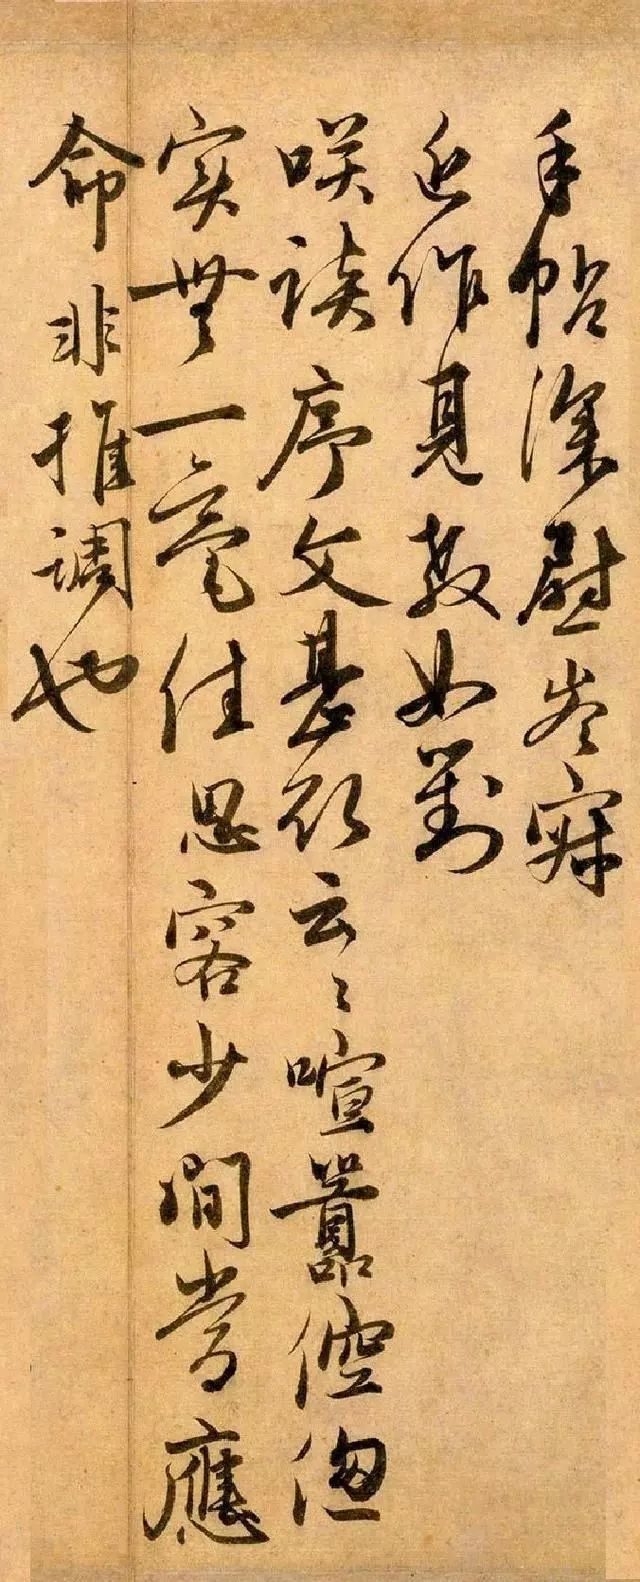 手帖深慰岑寂
近作見教如對
咲談序文甚欲云々喧囂倥偬
实無一毫佳思容少間當應
命非推調也